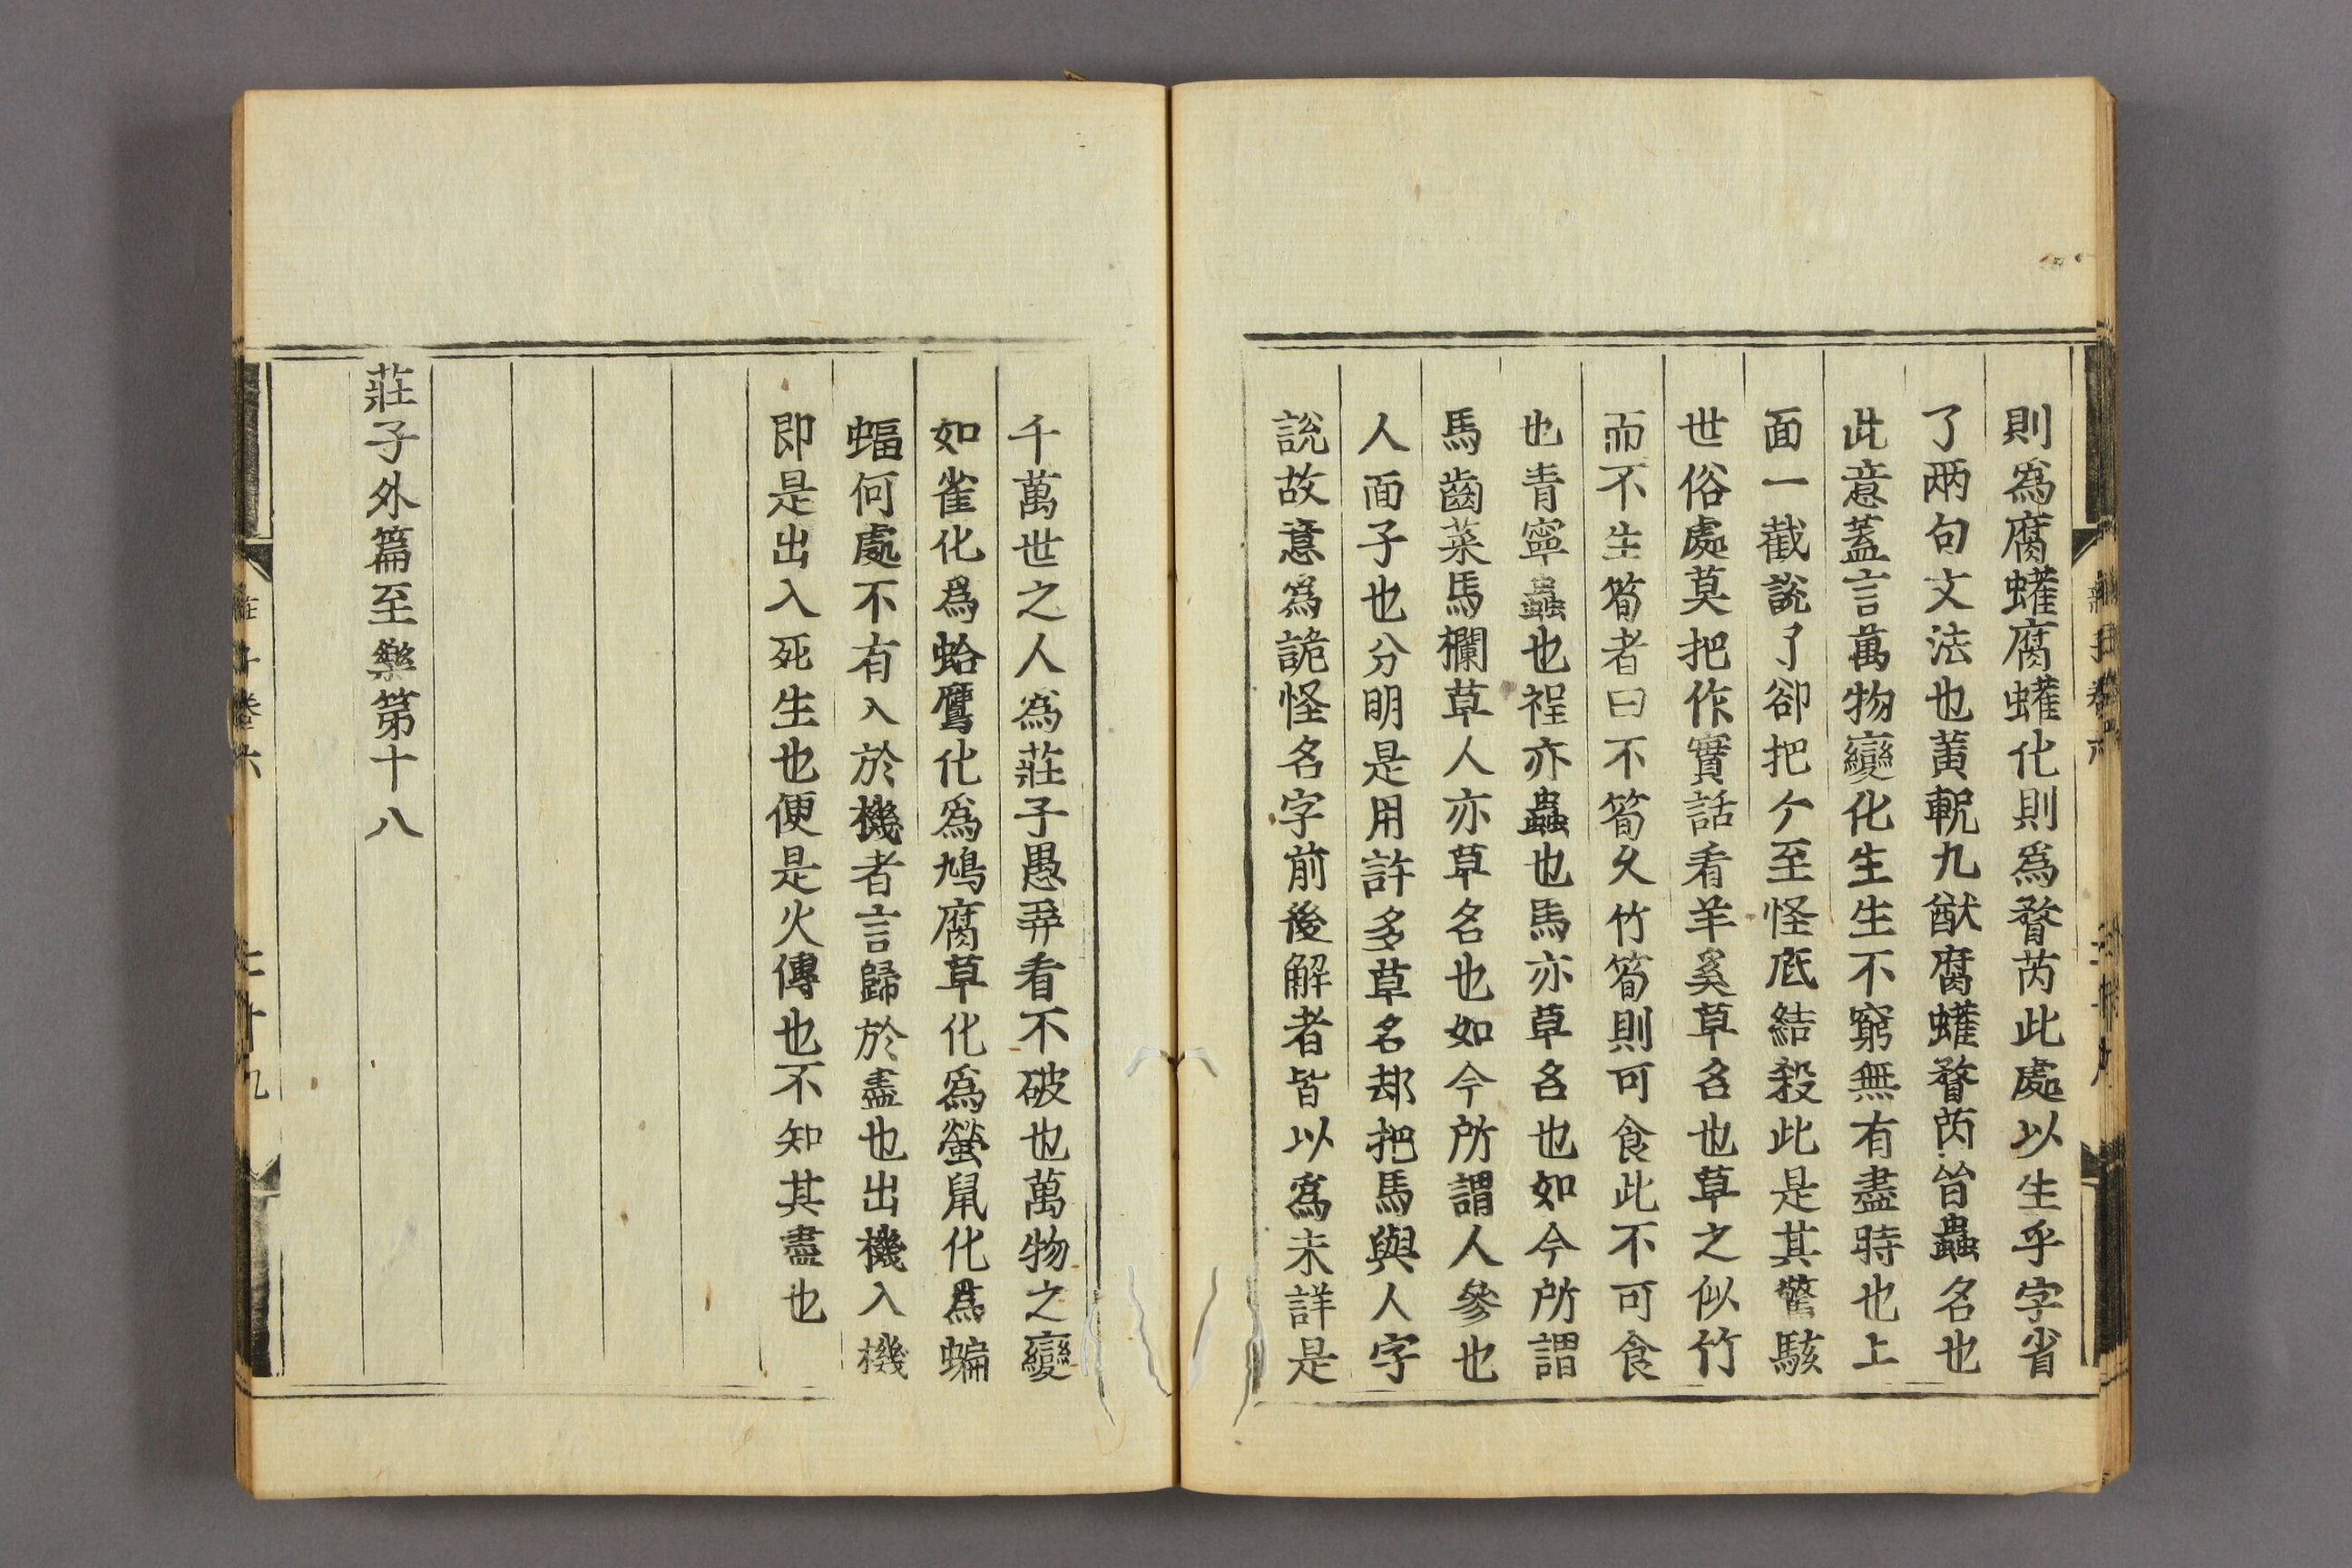 則爲腐蠸腐蠸化則爲瞀芮此處以生乎字省
了兩句文法也黃軦九猷腐蠸瞀芮皆蟲名也
此意蓋言萬物變化生生不窮無有盡時也上
面一截說了卻把个至怪底結殺此是其驚駭
世俗處莫把作實話看羊奚草名也草之似竹
而不生筍者曰不筍久竹筍則可食此不可食
也青寧蟲也程亦蟲也馬亦草名也如今所謂
馬齒菜馬欄草人亦草名也如今所謂人參也
人面子也分明是用許多草名却把馬與人字
說故意爲詭怪名字前後解者皆以爲未詳是
千萬世之人爲莊子愚弄看不破也萬物之變
如雀化爲蛤鷹化爲鳩腐草化爲螢鼠化爲蝙
蝠何處不有入於機者言歸於盡也出機入機
即是出入死生也便是火傳也不知其盡也
莊子外篇至樂第十八
莊子卷六 二十九